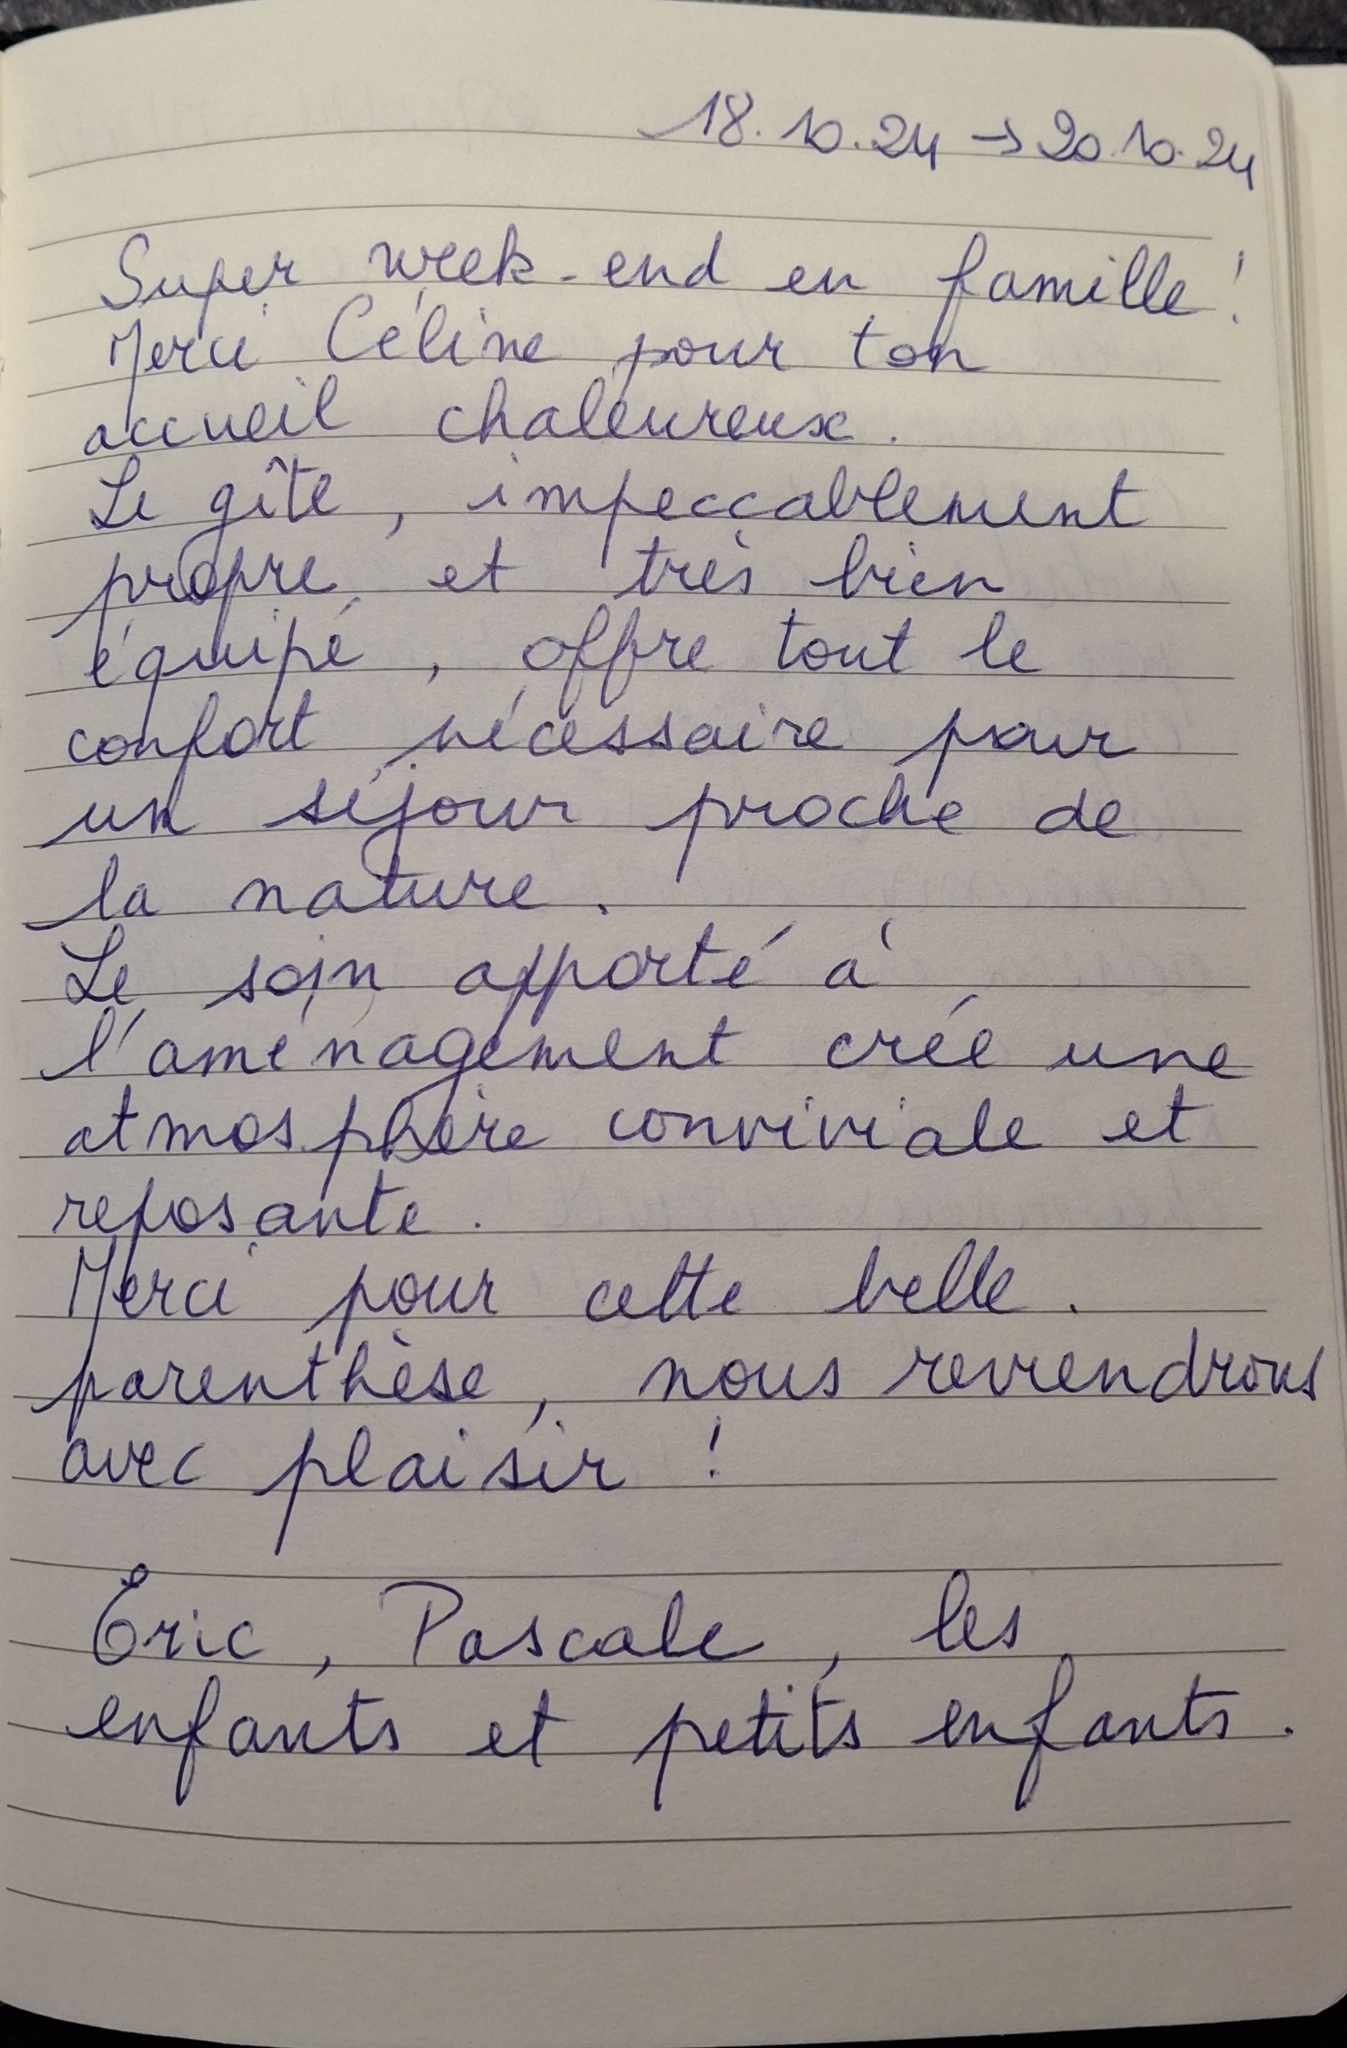 18.10.24 → 20.10.24
Super week-end en famille !
Merci Céline pour ton
accueil chaleureux.
Le gîte, impeccablement
propre et très bien
équipé, offre tout le
confort nécessaire pour
un séjour proche de
la nature.
Le soin apporté à
l'aménagement crée une
atmosphère conviviale et
reposante.
Merci pour cette belle.
parenthèse, nous reviendrons
avec plaisir !
Eric, Pascale, les
enfants et petits enfants.